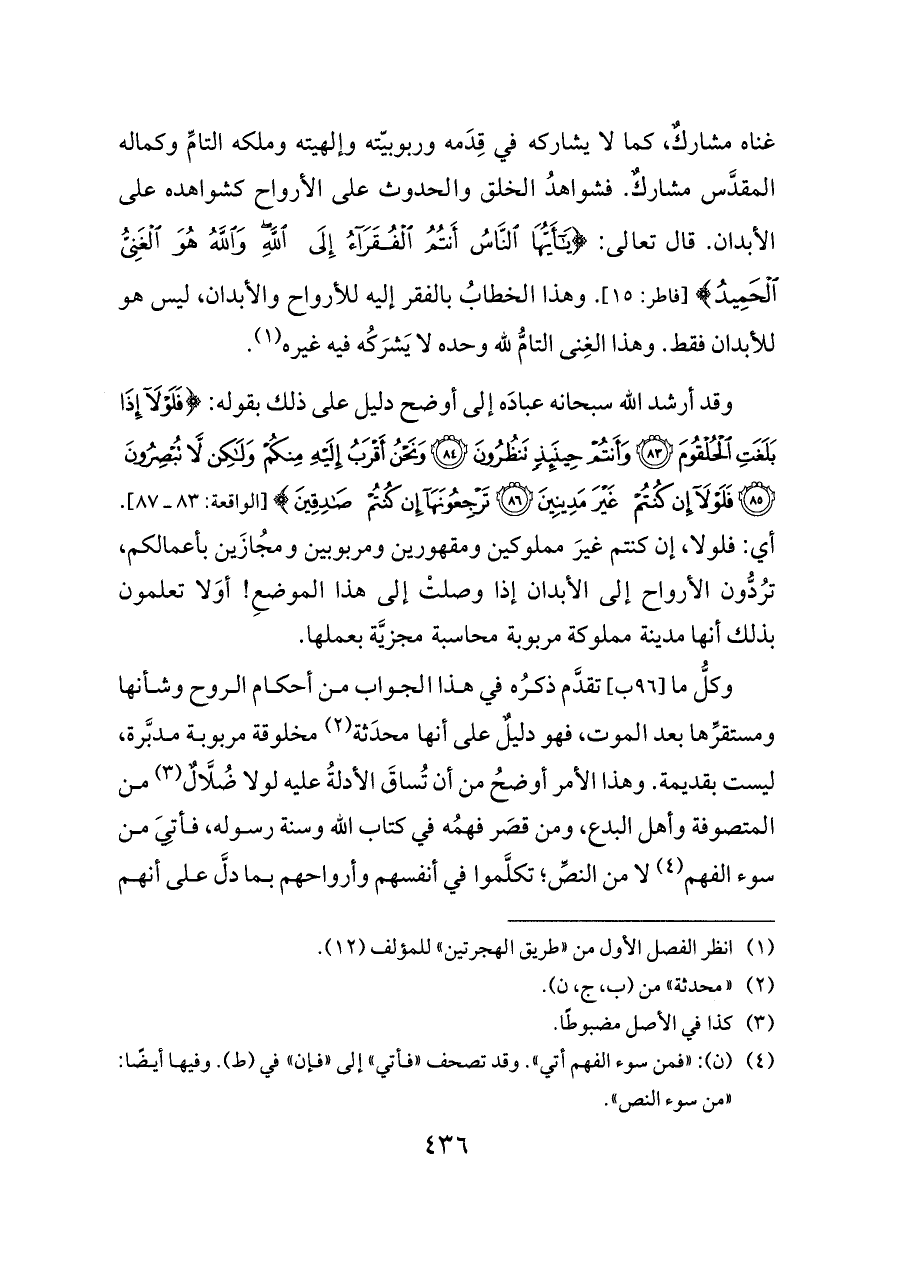 غناه مشاركٌ، كما لا يشاركه في قِدَمه وربوبيّته وإلهيته وملكه التامِّ وكماله
المقدَّس مشاركٌ. فشواهدُ الخلق والحدوث على الأرواح كشواهده على
الأبدان. قال تعالى: ﴿يَٰٓأَيُّهَا ٱلنَّاسُ أَنتُمُ ٱلْفُقَرَآءُ إِلَى ٱللَّهِۖ وَٱللَّهُ هُوَ ٱلْغَنِىُّ
ٱلْحَمِيدُ﴾ [فاطر: ١٥]. وهذا الخطابُ بالفقر إليه للأرواح والأبدان، ليس هو
للأبدان فقط. وهذا الغِنى التامُّ لله وحده لا يَشرَكُه فيه غيره(١).
وقد أرشد الله سبحانه عبادَه إلى أوضح دليل على ذلك بقوله: ﴿فَلَوْلَآ إِذَا
بَلَغَتِ ٱلْحُلْقُومَ ٨٣ وَأَنتُمْ حِينَئِذٍ تَنظُرُونَ ٨٤ وَنَحْنُ أَقْرَبُ إِلَيْهِ مِنكُمْ وَلَٰكِن لَّا تُبْصِرُونَ
٨٥ فَلَوْلَآ إِن كُنتُمْ غَيْرَ مَدِينِينَ ٨٦ تَرْجِعُونَهَآ إِن كُنتُمْ صَٰدِقِينَ﴾ [الواقعة: ٨٣ ـ ٨٧].
أي: فلولا، إن كنتم غيرَ مملوكين ومقهورين ومربوبين ومجُازَين بأعمالكم،
تردُّون الأرواح إلى الأبدان إذا وصلتْ إلى هذا الموضعِ! أوَلا تعلمون
بذلك أنها مدينة مملوكة مربوبة محاسبة مجزيَّة بعملها.
وكلُّ ما [٩٦ب] تقدَّم ذكرُه في هذا الجواب من أحكام الروح وشأنها
ومستقرِّها بعد الموت، فهو دليلٌ على أنها محدَثة(٢) مخلوقة مربوبة مدبَّرة،
ليست بقديمة. وهذا الأمر أوضحُ من أن تُساقَ الأدلةُ عليه لولا ضُلَّالٌ(٣) من
المتصوفة وأهل البدع، ومن قصَر فهمُه في كتاب الله وسنة رسوله، فأتيَ من
سوء الفهم(٤) لا من النصِّ؛ تكلَّموا في أنفسهم وأرواحهم بما دلَّ على أنهم
(١) انظر الفصل الأول من «طريق الهجرتين» للمؤلف (١٢).
(٢) «محدثة» من (ب، ج، ن).
(٣) كذا في الأصل مضبوطًا.
(٤) (ن): «فمن سوء الفهم أتي». وقد تصحف «فأتي» إلى «فإن» في (ط). وفيها أيضًا:
«من سوء النص».
٤٣٦